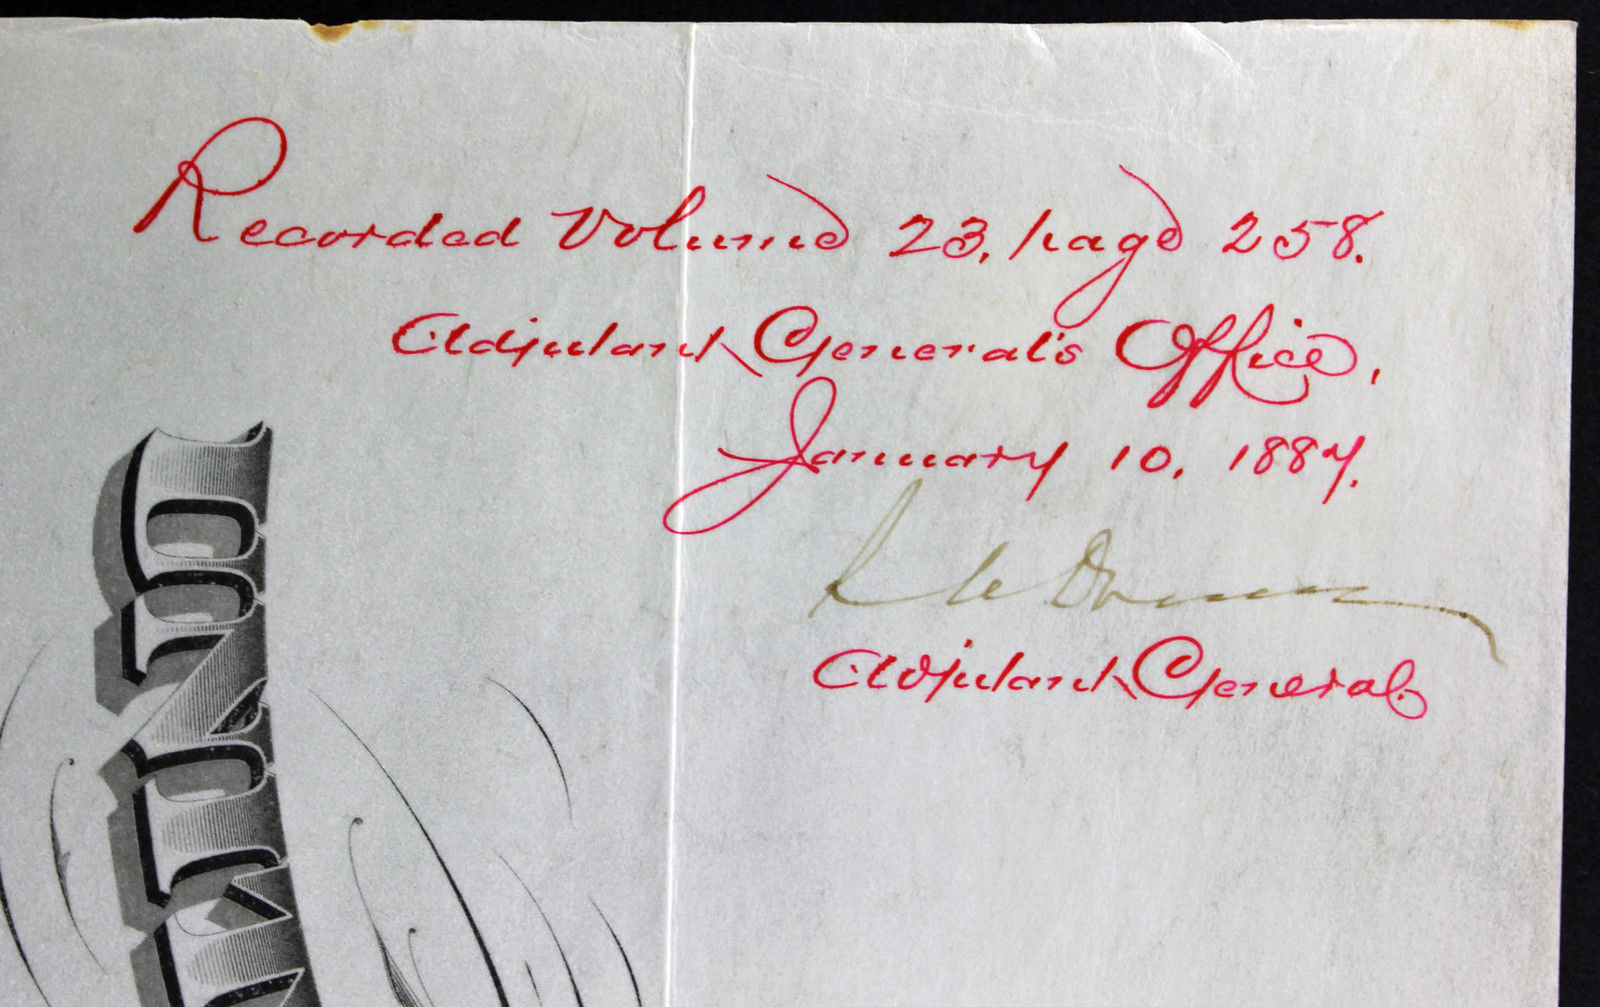 Recorded Volume 23, page 258.
Adjutant General's Office,
January 10, 1887.
R. C. Drum
Adjutant General.